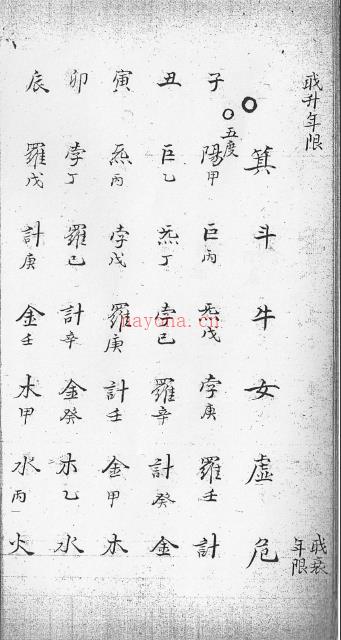 升年限
年限
箕斗牛女虛危
五度
子陽甲巨丙炁戊孛庚羅壬計
丑巨乙炁丁孛己羅辛計癸金
寅炁丙孛戊羅庚計壬金甲木
卯孛丁羅己計辛金癸木乙水
辰羅戊計庚金壬木甲水丙火
nayona.cn